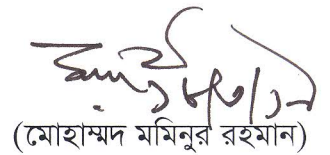 (মোহাম্মদ মমিনুর রহমান)